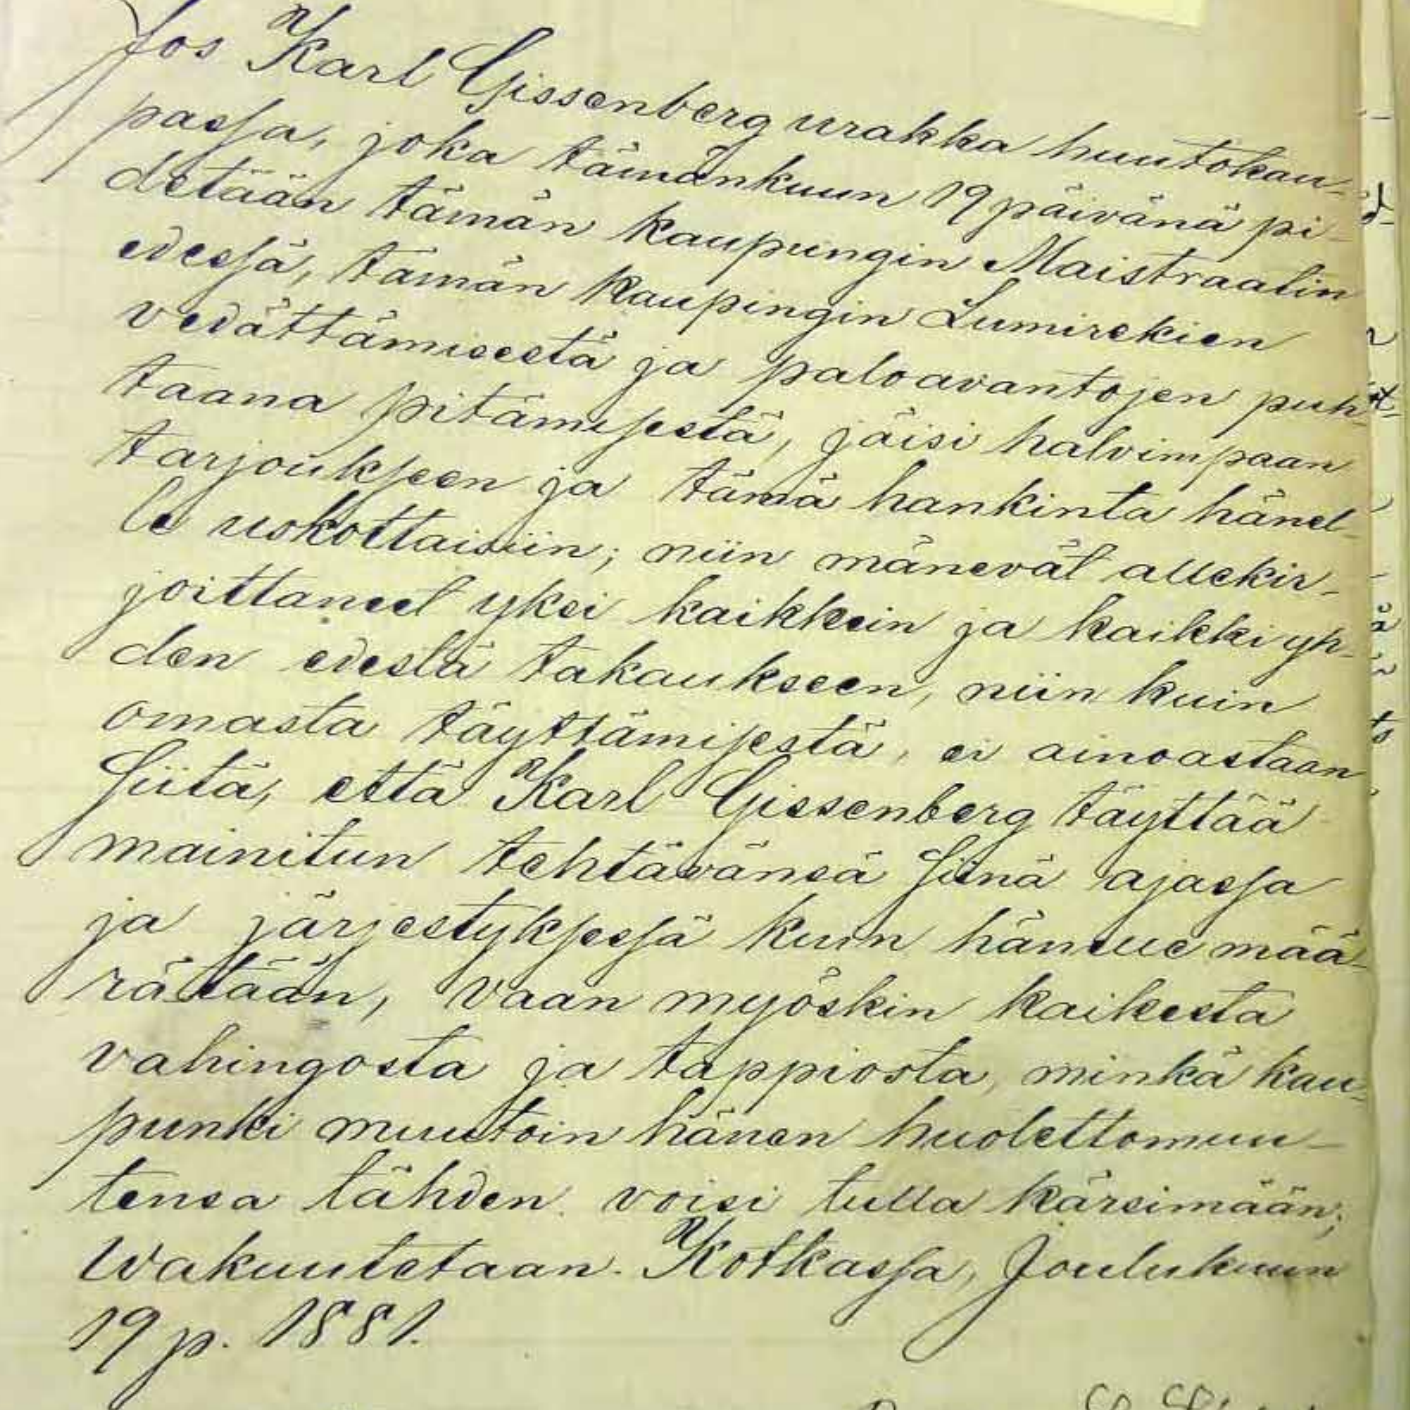 Jos Karl Gissenberg urakka huutokau-
passa, joka tämänkuun 19 päivänä pi-
detään tämän kaupungin Maistraatin
edessä, tämän kaupingin Lumirekien
vedättämisestä ja paloavantojen puh-
taana pitämisestä, jäisi halvimpaan
tarjoukseen ja tämä hankinta hänel-
le uskottaisiin; niin mänevät allekir-
joittaneet yksi kaikkein ja kaikki yh-
den edestä takaukseen, niin kuin
omasta täyttämisestä, ei ainoastaan
siitä, että Karl Gissenberg täyttää
mainitun tehtävänsä siinä ajassa
ja järjestyksessä kuin hänelle mää-
rätään, vaan myöskin kaikesta
vahingosta ja tappiosta, minkä kau-
punki muutoin hänen huolettomuu-
tensa tähden voisi tulla kärsimään;
Wakuutetaan. Kotkassa, Joulukuun
19 p. 1881.